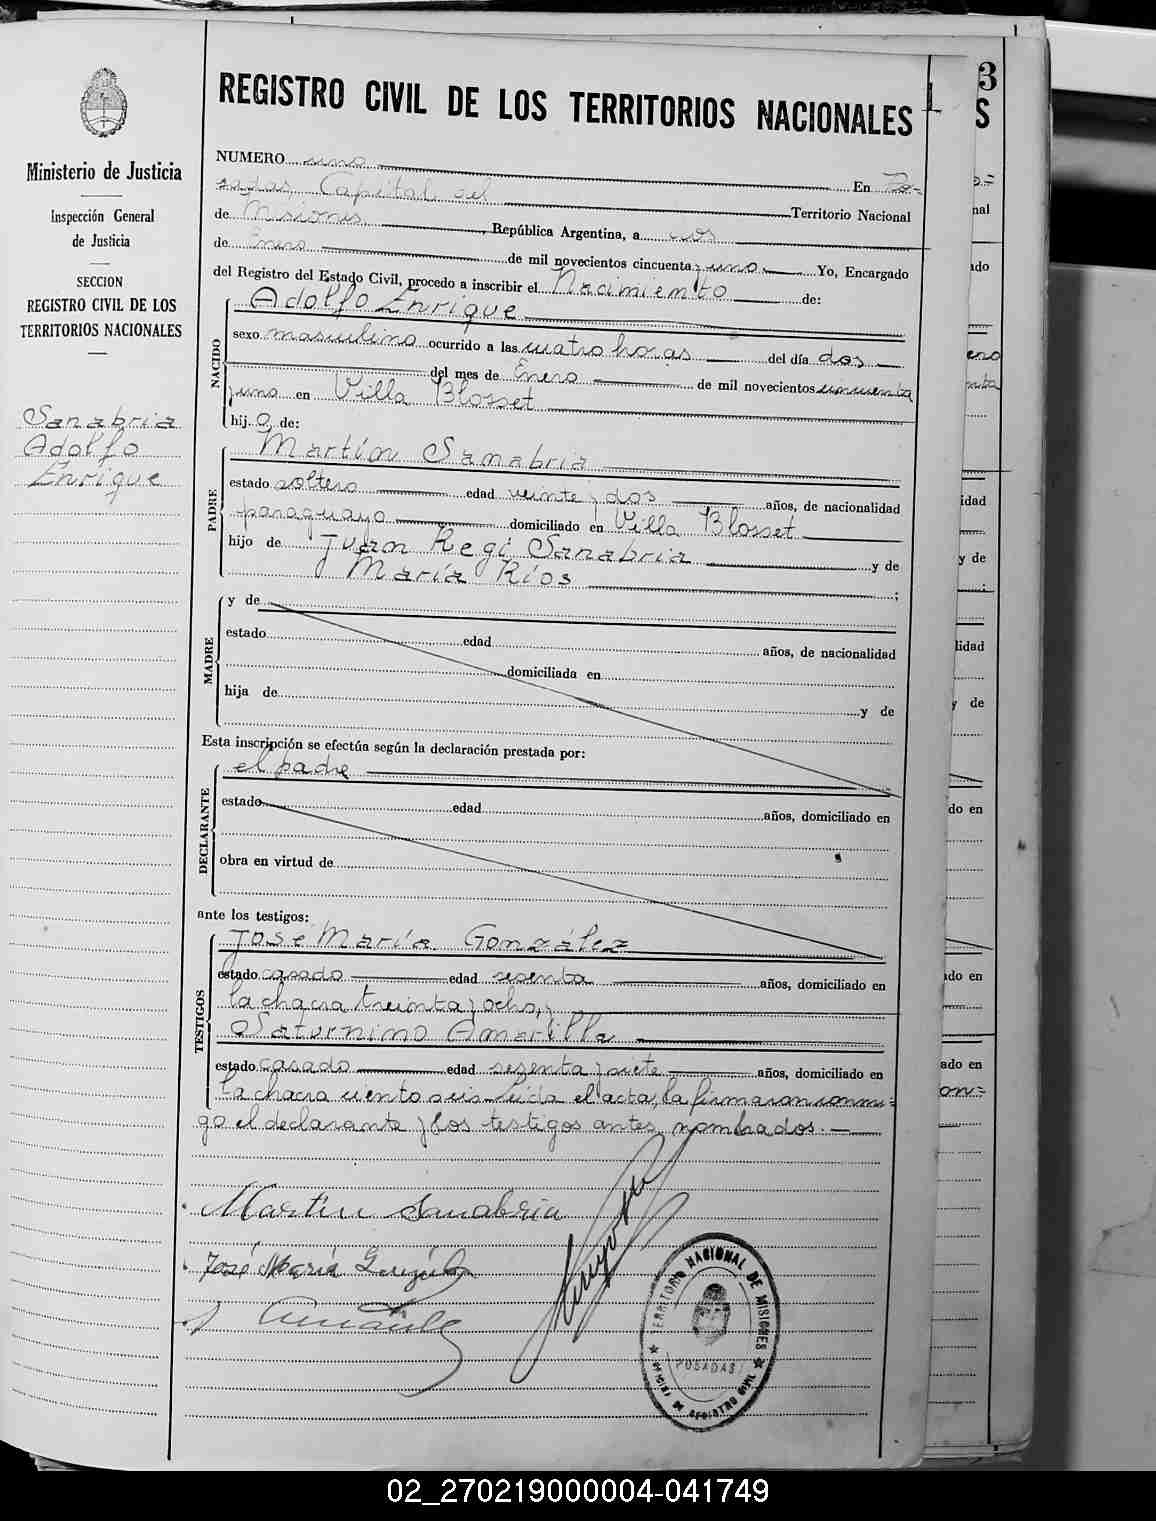 REGISTRO CIVIL DE LOS TERRITORIOS NACIONALES
1
Ministerio de Justicia
Inspección General
de Justicia
SECCION
REGISTRO CIVIL DE LOS
TERRITORIOS NACIONALES
Sanabria
Adolfo
Enrique
NUMERO uno En Po=
sadas, Capital del Territorio Nacional
de Misiones, República Argentina, a dos
de Enero de mil novecientos cincuenta y uno Yo, Encargado
del Registro del Estado Civil, procedo a inscribir el Nacimiento de:
NACIDO
Adolfo Enrique
sexo masculino ocurrido a las cuatro horas del día dos
del mes de Enero de mil novecientos cincuenta
y uno en Villa Blosset
hijo de:
PADRE
Martín Sanabria
estado soltero edad veinte y dos años, de nacionalidad
paraguayo domiciliado en Villa Blosset
hijo de Juan Regi Sanabria y de
María Ríos ;
MADRE
y de
estado edad años, de nacionalidad
domiciliada en
hija de y de
Esta inscripción se efectúa según la declaración prestada por:
DECLARANTE
el padre
estado edad años, domiciliado en
obra en virtud de
ante los testigos:
TESTIGOS
José María González
estado casado edad sesenta años, domiciliado en
la chacra treinta y ocho, y
Saturnino Amarilla
estado casado edad sesenta y siete años, domiciliado en
la chacra ciento seis-Leída el acta, la firmaron conmi=
go el declarante y los testigos antes nombrados.-
Martin Sanabria
José María González
TERRITORIO NACIONAL DE MISIONES
POSADAS
OFICINA DE REGISTRO CIVIL
3
S
nal
ado
idad
y de
lidad
y de
do en
ado en
ado en
02_270219000004-041749